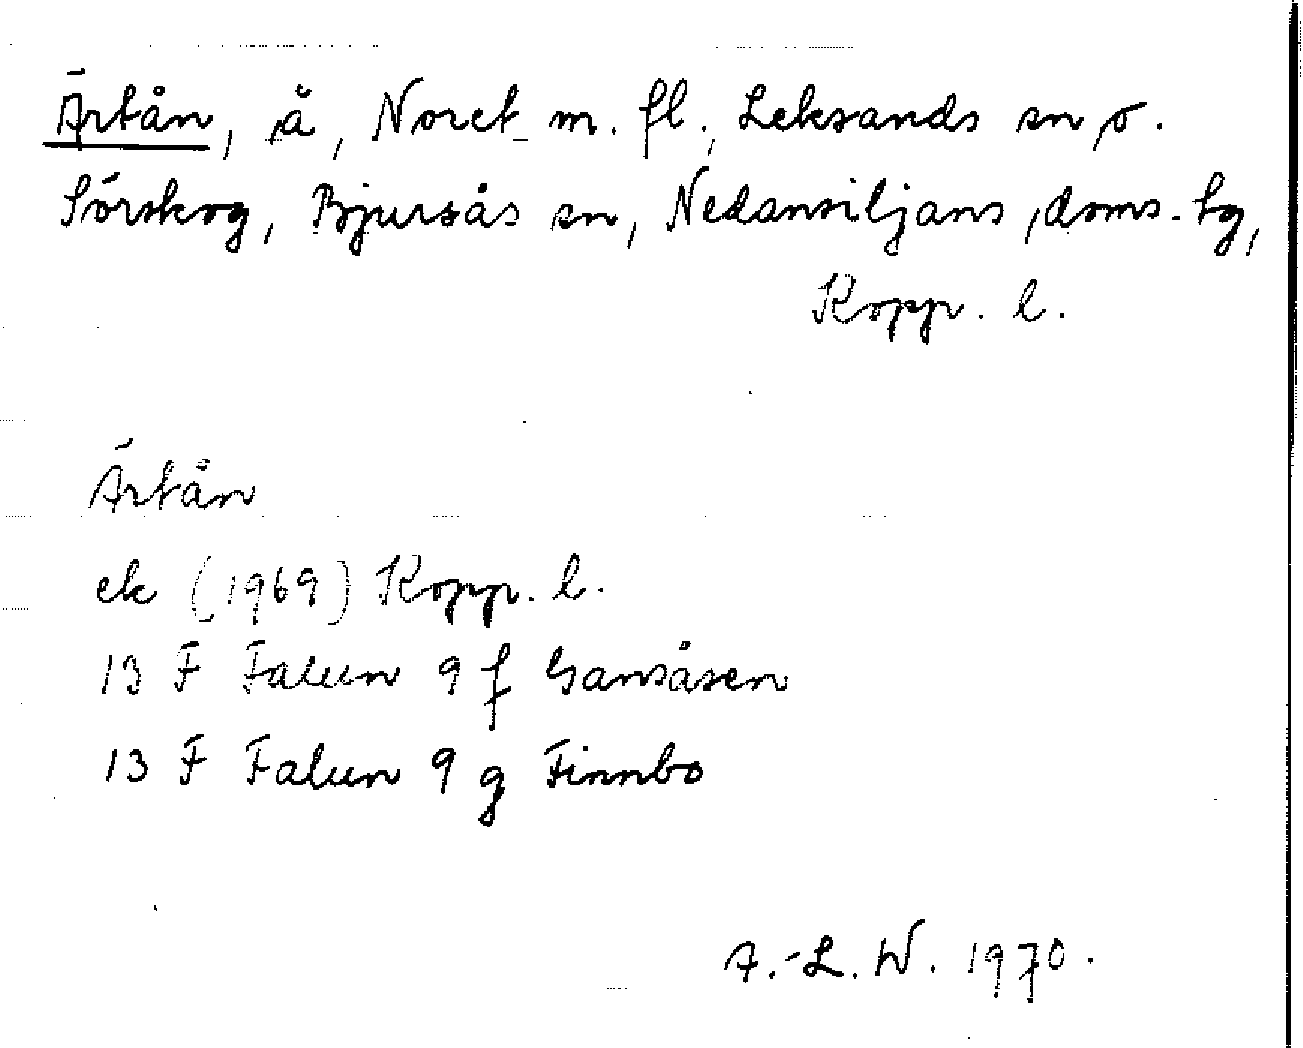 Ärtån, å, Noret m. fl., Leksands sn o.
Sörskog, Bjursås sn, Nedansiljans doms. hg,
Kopp. l.
Ärtån
ek (1969) Kopp. l.
13 F Falun 9 f Gansåsen
13 F Falun 9 g Finnbo
A.-L. W. 1970.